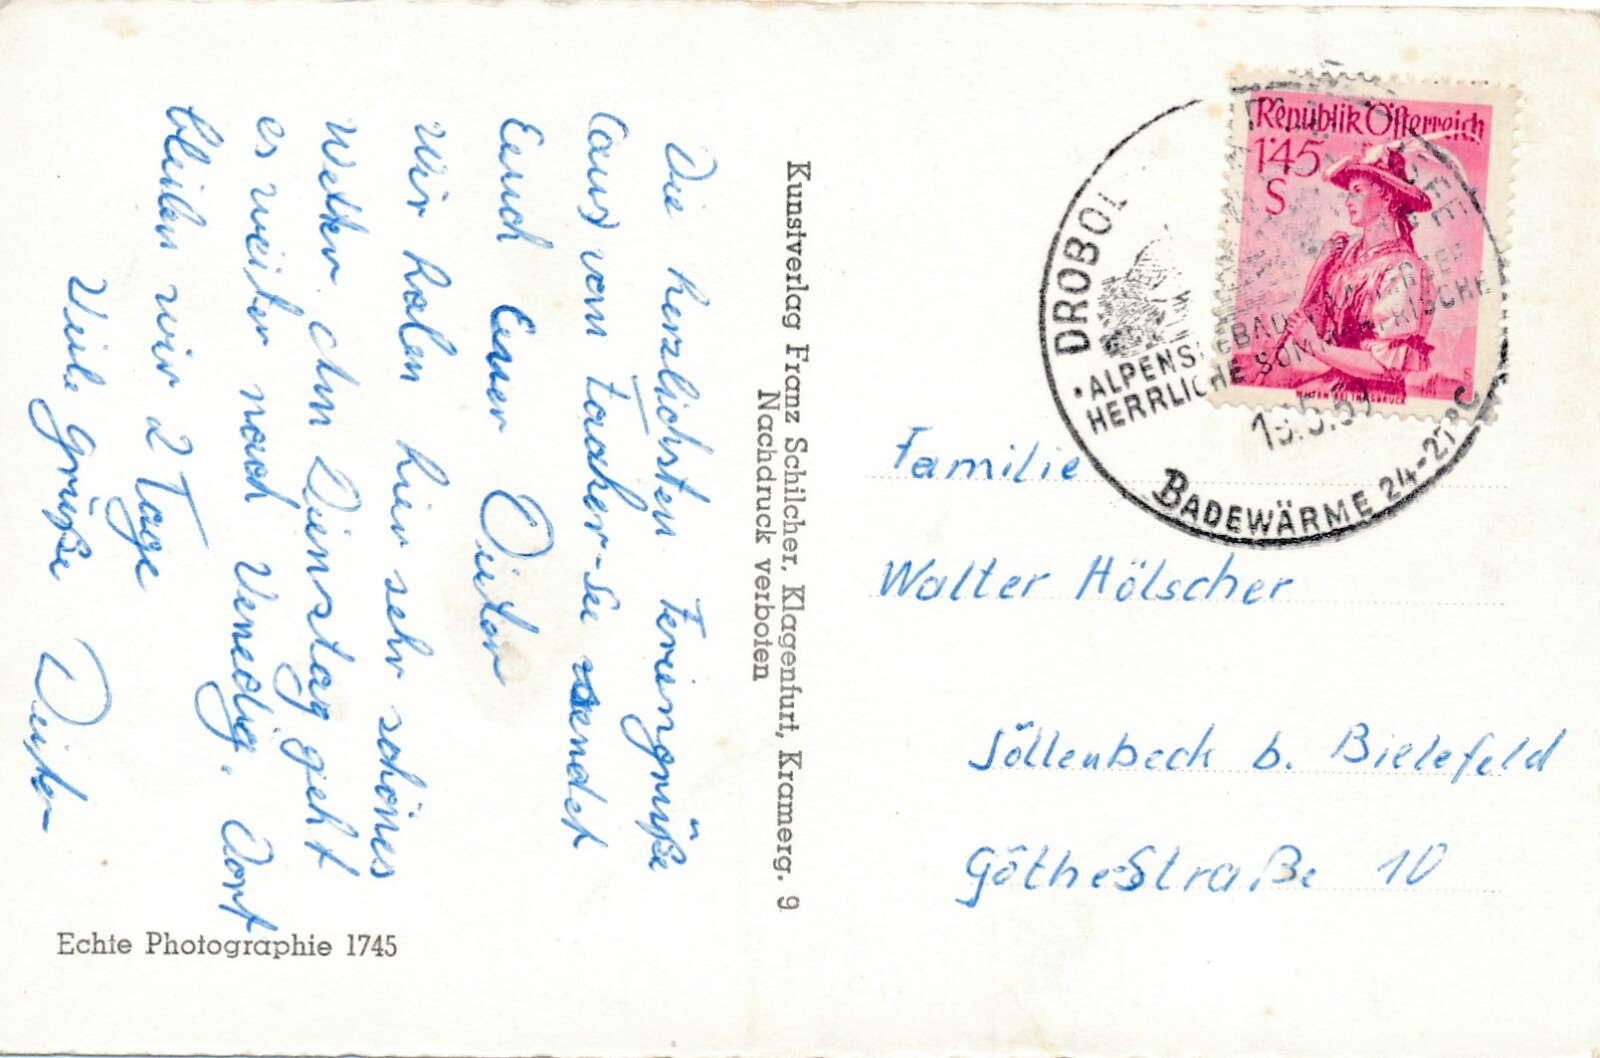 Die herzlichsten Feriengrüße
(aus) vom Faaker-See sendet
Euch Euer Dieter
Wir haben hier sehr schönes
Wetter. Am Dienstag geht
es weiter nach Venedig. Dort
bleiben wir 2 Tage
Viele Grüße Dieter
Echte Photographie 1745
Kunstverlag Franz Schilcher, Klagenfurt, Kramerg. 9
Nachdruck verboten
Republik Österreich
1·45
S
DROBOL SEE
ALPENSEEBAD
HERRLICHE SOMMERFRISCHE
BADEWÄRME 24-27°C
Familie
Walter Hölscher
Jöllenbeck b. Bielefeld
Göthestraße 10